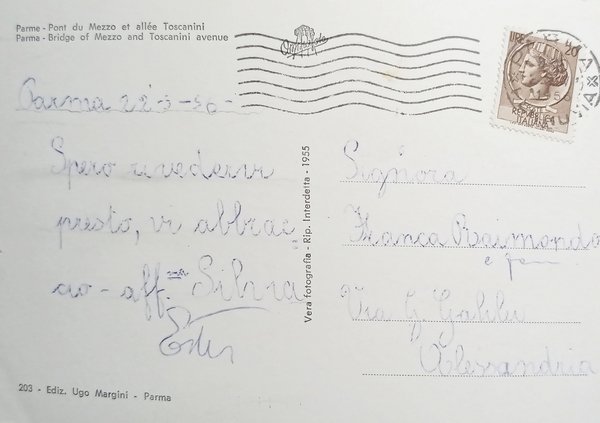 Parme - Pont du Mezzo et allée Toscanini
Parma - Bridge of Mezzo and Toscanini avenue
Parma 22-5-
Spero rivedervi
presto, vi abbrac
cio - aff.ma Silvia
Ester
203 - Ediz. Ugo Margini - Parma
Vera fotografia - Rip. Interdetta - 1955
Signora
Franca Raimondo
e fam
Via G. Galilei
Alessandria